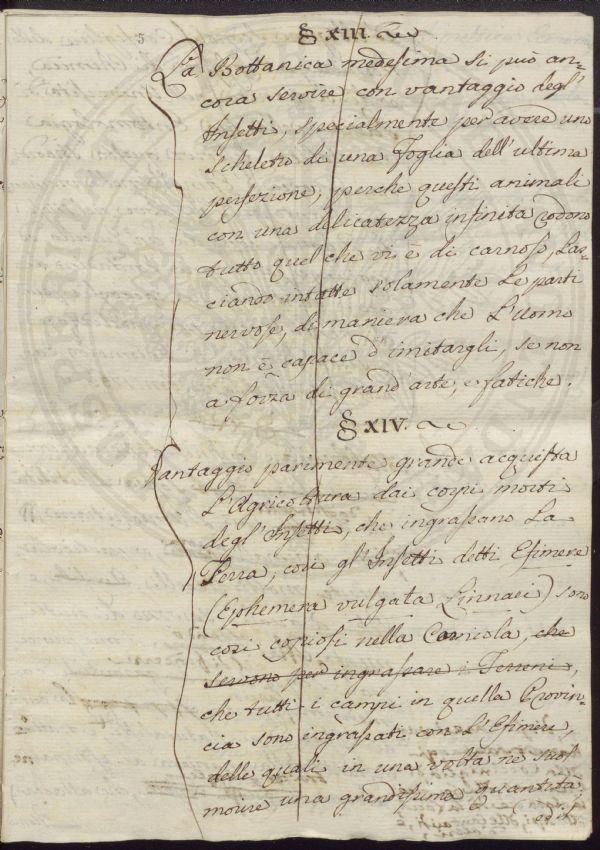 5
§ XIII.
La Bottanica medesima si può an=
cora servire con vantaggio degl'
Insetti, specialmente per avere uno
scheletro di una Foglia dell'ultima
perfezione, perche questi animali
con una delicatezza infinita rodono
tutto quel che vi è di carnoso, Las=
ciando intatte solamente Le parti
nervose, di maniera che L'Uomo
non è capace d'imitargli, se non
a forza di grand'arte, e fatiche.
§ XIV.
Vantaggio parimente grande acquista
L'Agricoltura dai corpi morti
degl'Insetti, che ingrassano La
Terra, così gl'Insetti detti Efimere
(Ephemera vulgata Linnaei) sono
così copiosi nella Carnicola, che
servono per ingrassare i Terreni,
che tutti i campi in quella Provin=
cia sono ingrassati con L'Efimere,
delle quali in una volta ne suol
morire una grandissima quantità,